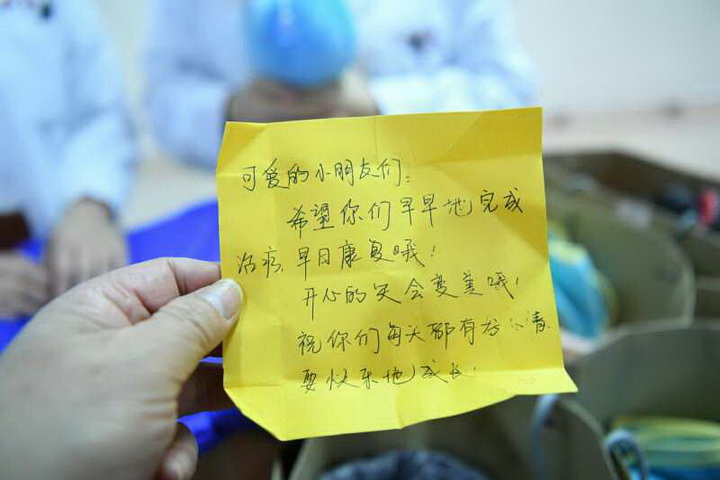 可爱的小朋友们:
希望你们早早地完成
治病,早日康复哦!
开心的笑会变美哦!
祝你们每天都有好心情
要快乐地成长!